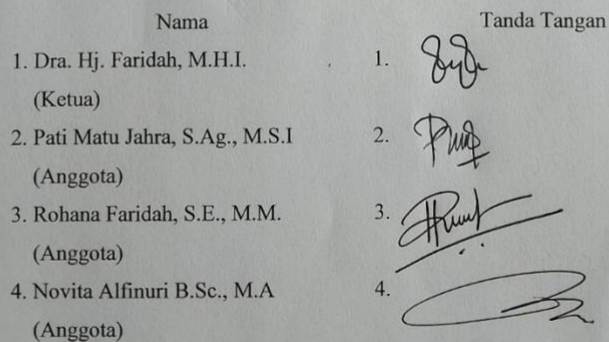 Nama Tanda Tangan
1. Dra. Hj. Faridah, M.H.I. 1.
(Ketua)
2. Pati Matu Jahra, S.Ag., M.S.I 2.
(Anggota)
3. Rohana Faridah, S.E., M.M. 3.
(Anggota)
4. Novita Alfinuri B.Sc., M.A 4.
(Anggota)